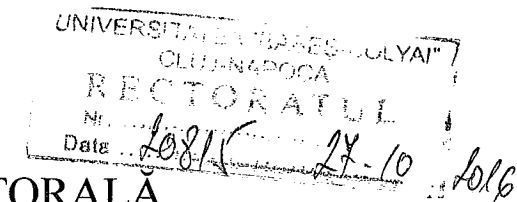 UNIVERSITATEA "BABEŞ-BOLYAI"
CLUJ-NAPOCA
RECTORATUL
Nr. 20815
Data 27-10 2016
TORALĂ